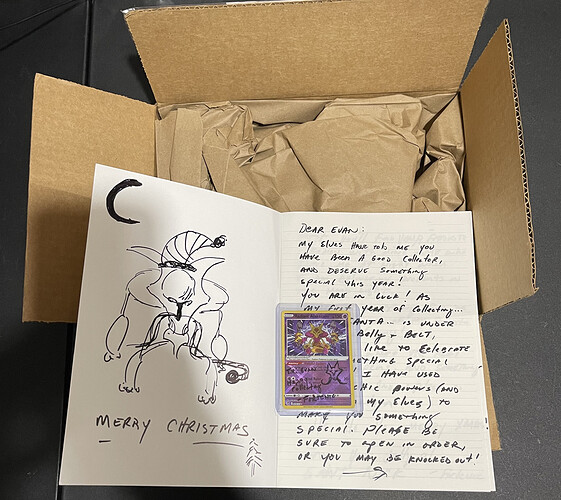 MERRY CHRISTMAS
DEAR EVAN:
MY ELVES HAVE TOLD ME YOU
HAVE BEEN A GOOD COLLECTOR,
AND DESERVE SOMETHING
SPECIAL THIS YEAR!
YOU ARE IN LUCK! AS
MY FIRST YEAR OF COLLECTING...
ANTA... IS UNDER
BELLY + BELT,
LIKE TO CELEBRATE
ETHING SPECIAL
! I HAVE USED
CHIC POWERS (AND
MY ELVES) TO
MAKE YOU SOMETHING
SPECIAL. PLEASE BE
SURE TO OPEN IN ORDER,
OR YOU MAY BE KNOCKED OUT!
TO: EVAN